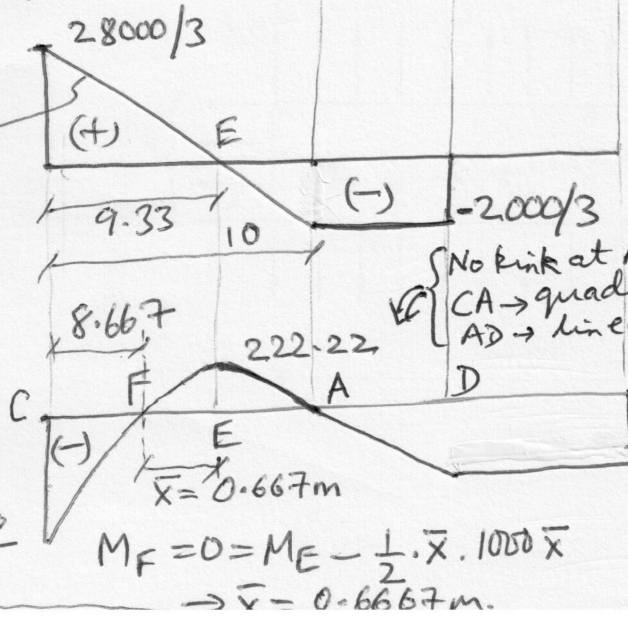 28000/3
(+)
E
(-)
-2000/3
9.33
10
No kink at
CA → quad
AD → line
8.667
222.22
C
F
A
D
(-)
E
x̄ = 0.667m
M_F = 0 = M_E - 1/2 · x̄ . 1000 x̄
→ x̄ = 0.6667m.